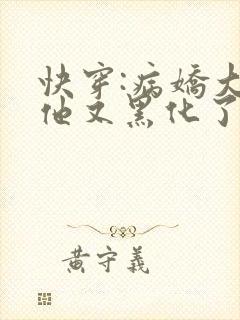 快穿:病娇大
他又黑化了
黄守义